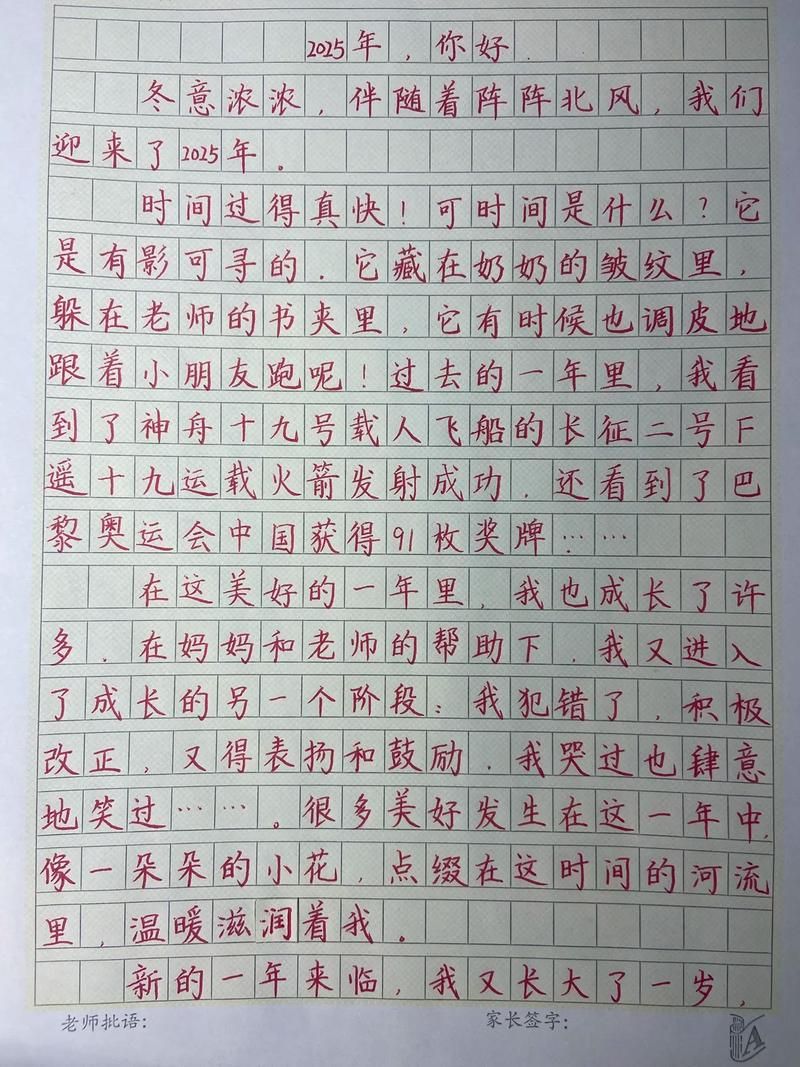 2025年，你好.
冬意浓浓，伴随着阵阵北风，我们
迎来了2025年。
时间过得真快！可时间是什么？它
是有影可寻的.它藏在奶奶的皱纹里，
躲在老师的书夹里，它有时候也调皮地
跟着小朋友跑呢！过去的一年里，我看
到了神舟十九号载人飞船的长征二号F
遥十九运载火箭发射成功.还看到了巴
黎奥运会中国获得91枚奖牌……
在这美好的一年里，我也成长了许
多.在妈妈和老师的帮助下.我又进入
了成长的另一个阶段：我犯错了，积极
改正，又得表扬和鼓励.我哭过也肆意
地笑过……。很多美好发生在这一年中，
像一朵朵的小花，点缀在这时间的河流
里，温暖滋润着我。
新的一年来临，我又长大了一岁，
老师批语：
家长签字：